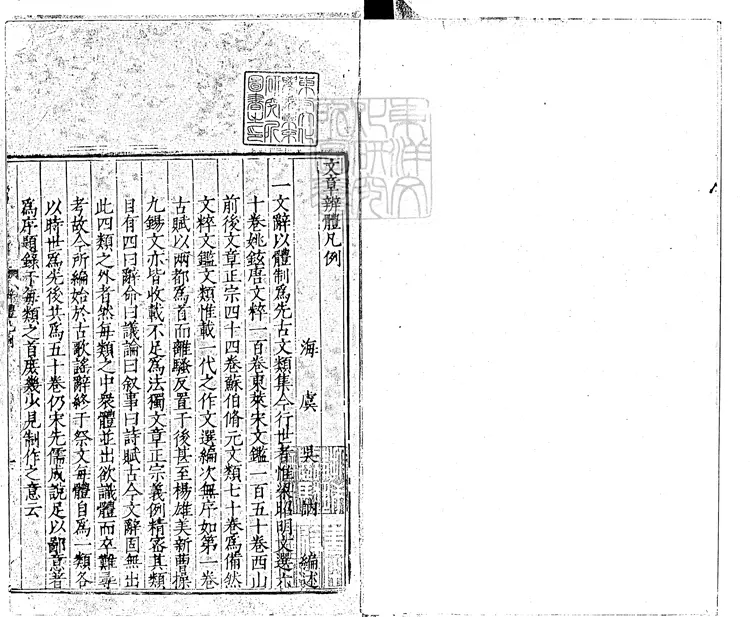 文章辨體凡例
海虞 吳訥 編述
一文辭以體制為先古文類集今行世者惟梁昭明文選六
十卷姚鉉唐文粹一百卷東萊宋文鑑一百五十卷西山
前後文章正宗四十四卷蘇伯脩元文類七十卷為備然
文粹文鑑文類惟載一代之作文選編次無序如第一卷
古賦以兩都為首而離騷反置于後甚至楊雄美新曹操
九錫文亦皆收載不足為法獨文章正宗義例精密其類
目有四曰辭命曰議論曰敘事曰詩賦古今文辭固無出
此四類之外者然每類之中衆體並出欲識體而卒難尋
考故今所編始於古歌謠辭終于祭文每體自為一類各
以時世為先後共為五十卷仍宋先儒成說足以鄙意著
為序題錄于每類之首庶幾少見制作之意云
辨體凡例
東方文化
圖書之印
東洋文
化研究